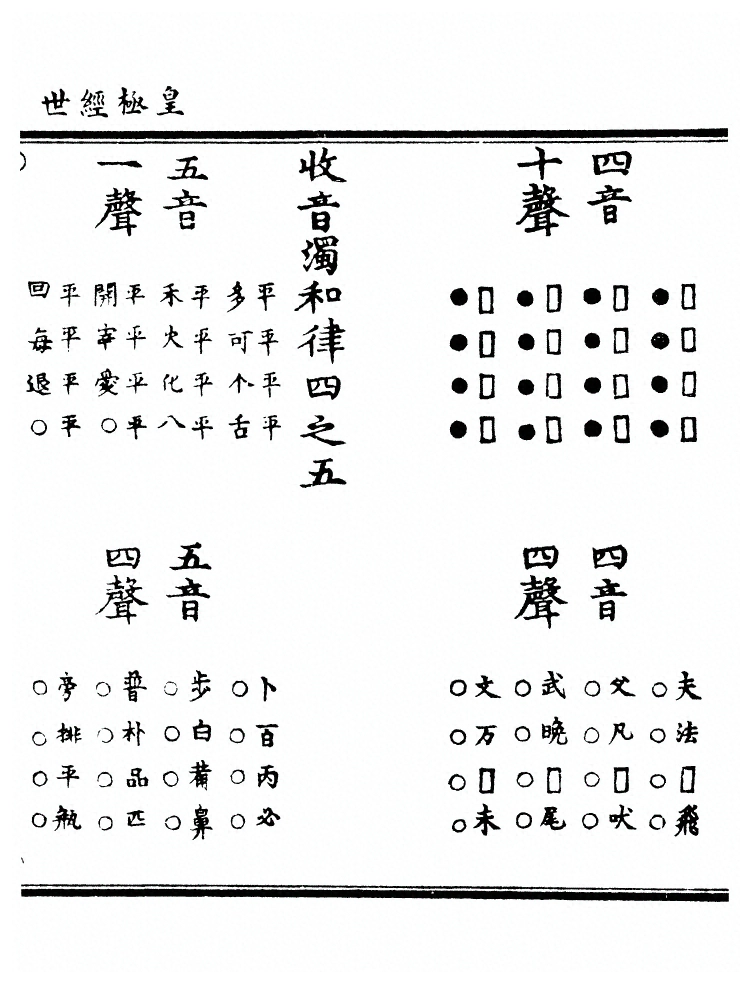 皇極經世
四音
十聲
□□□□
●●●●
□□□□
●●●●
□□□□
●●●●
□□□□
●●●●
四音
四聲
夫法□飛
○○○○
父凡□吠
○○○○
武晚□尾
○○○○
文万□未
○○○○
收音濁和律四之五
五音
一聲
平平平平
多可个舌
平平平平
禾火化八
平平平平
開宰愛○
平平平平
回每退○
五音
四聲
卜百丙必
○○○○
步白鼻
○○○○
普朴品匹
○○○○
旁排平瓶
○○○○